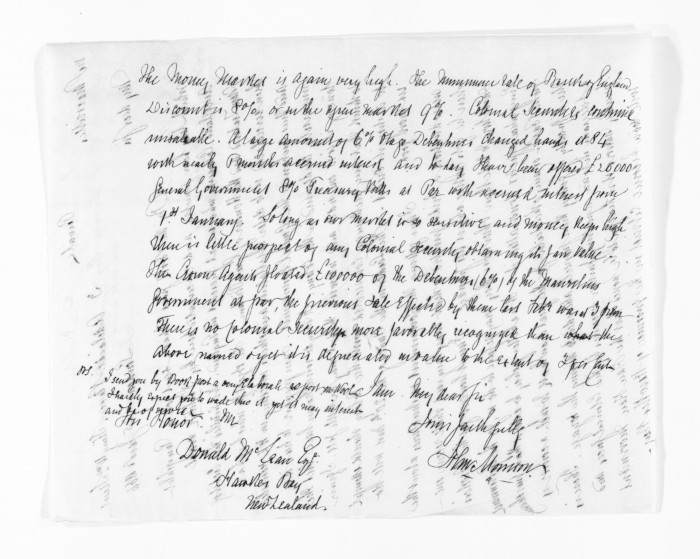 The Money Market is again very high. The minimum rate of Bank of England
Discount is 8% or in the open market 9%. Colonial Securities continue
unsaleable. A large amount of 6% Otago Debentures changed hands at 84
with nearly 6 months accrued interest and to day I have been offered £26,000
General Government 8% Treasury Bills at Par with accrued interest from
1st January. So long as our market is so sensitive and money keeps high
there is little prospect of any Colonial Security obtaining its fair value.
The Crown Agents floated £100000 of the Debentures (6%) of the Mauritius
Government at par, the previous sale effected by them last Feby was at 7 prem
There is no Colonial Security more favorably recognized than the
above named & yet it is depreciated in value to the extent of 7 per Cent
P.S.
I send you by Book post a very elaborate report on
I hardly expect you to wade thro it yet it may interest
and be of service
I am My dear Sir
Yours faithfully
His Honor Mr
Donald McLean Esqr
Hawkes Bay
New Zealand.
Morrison